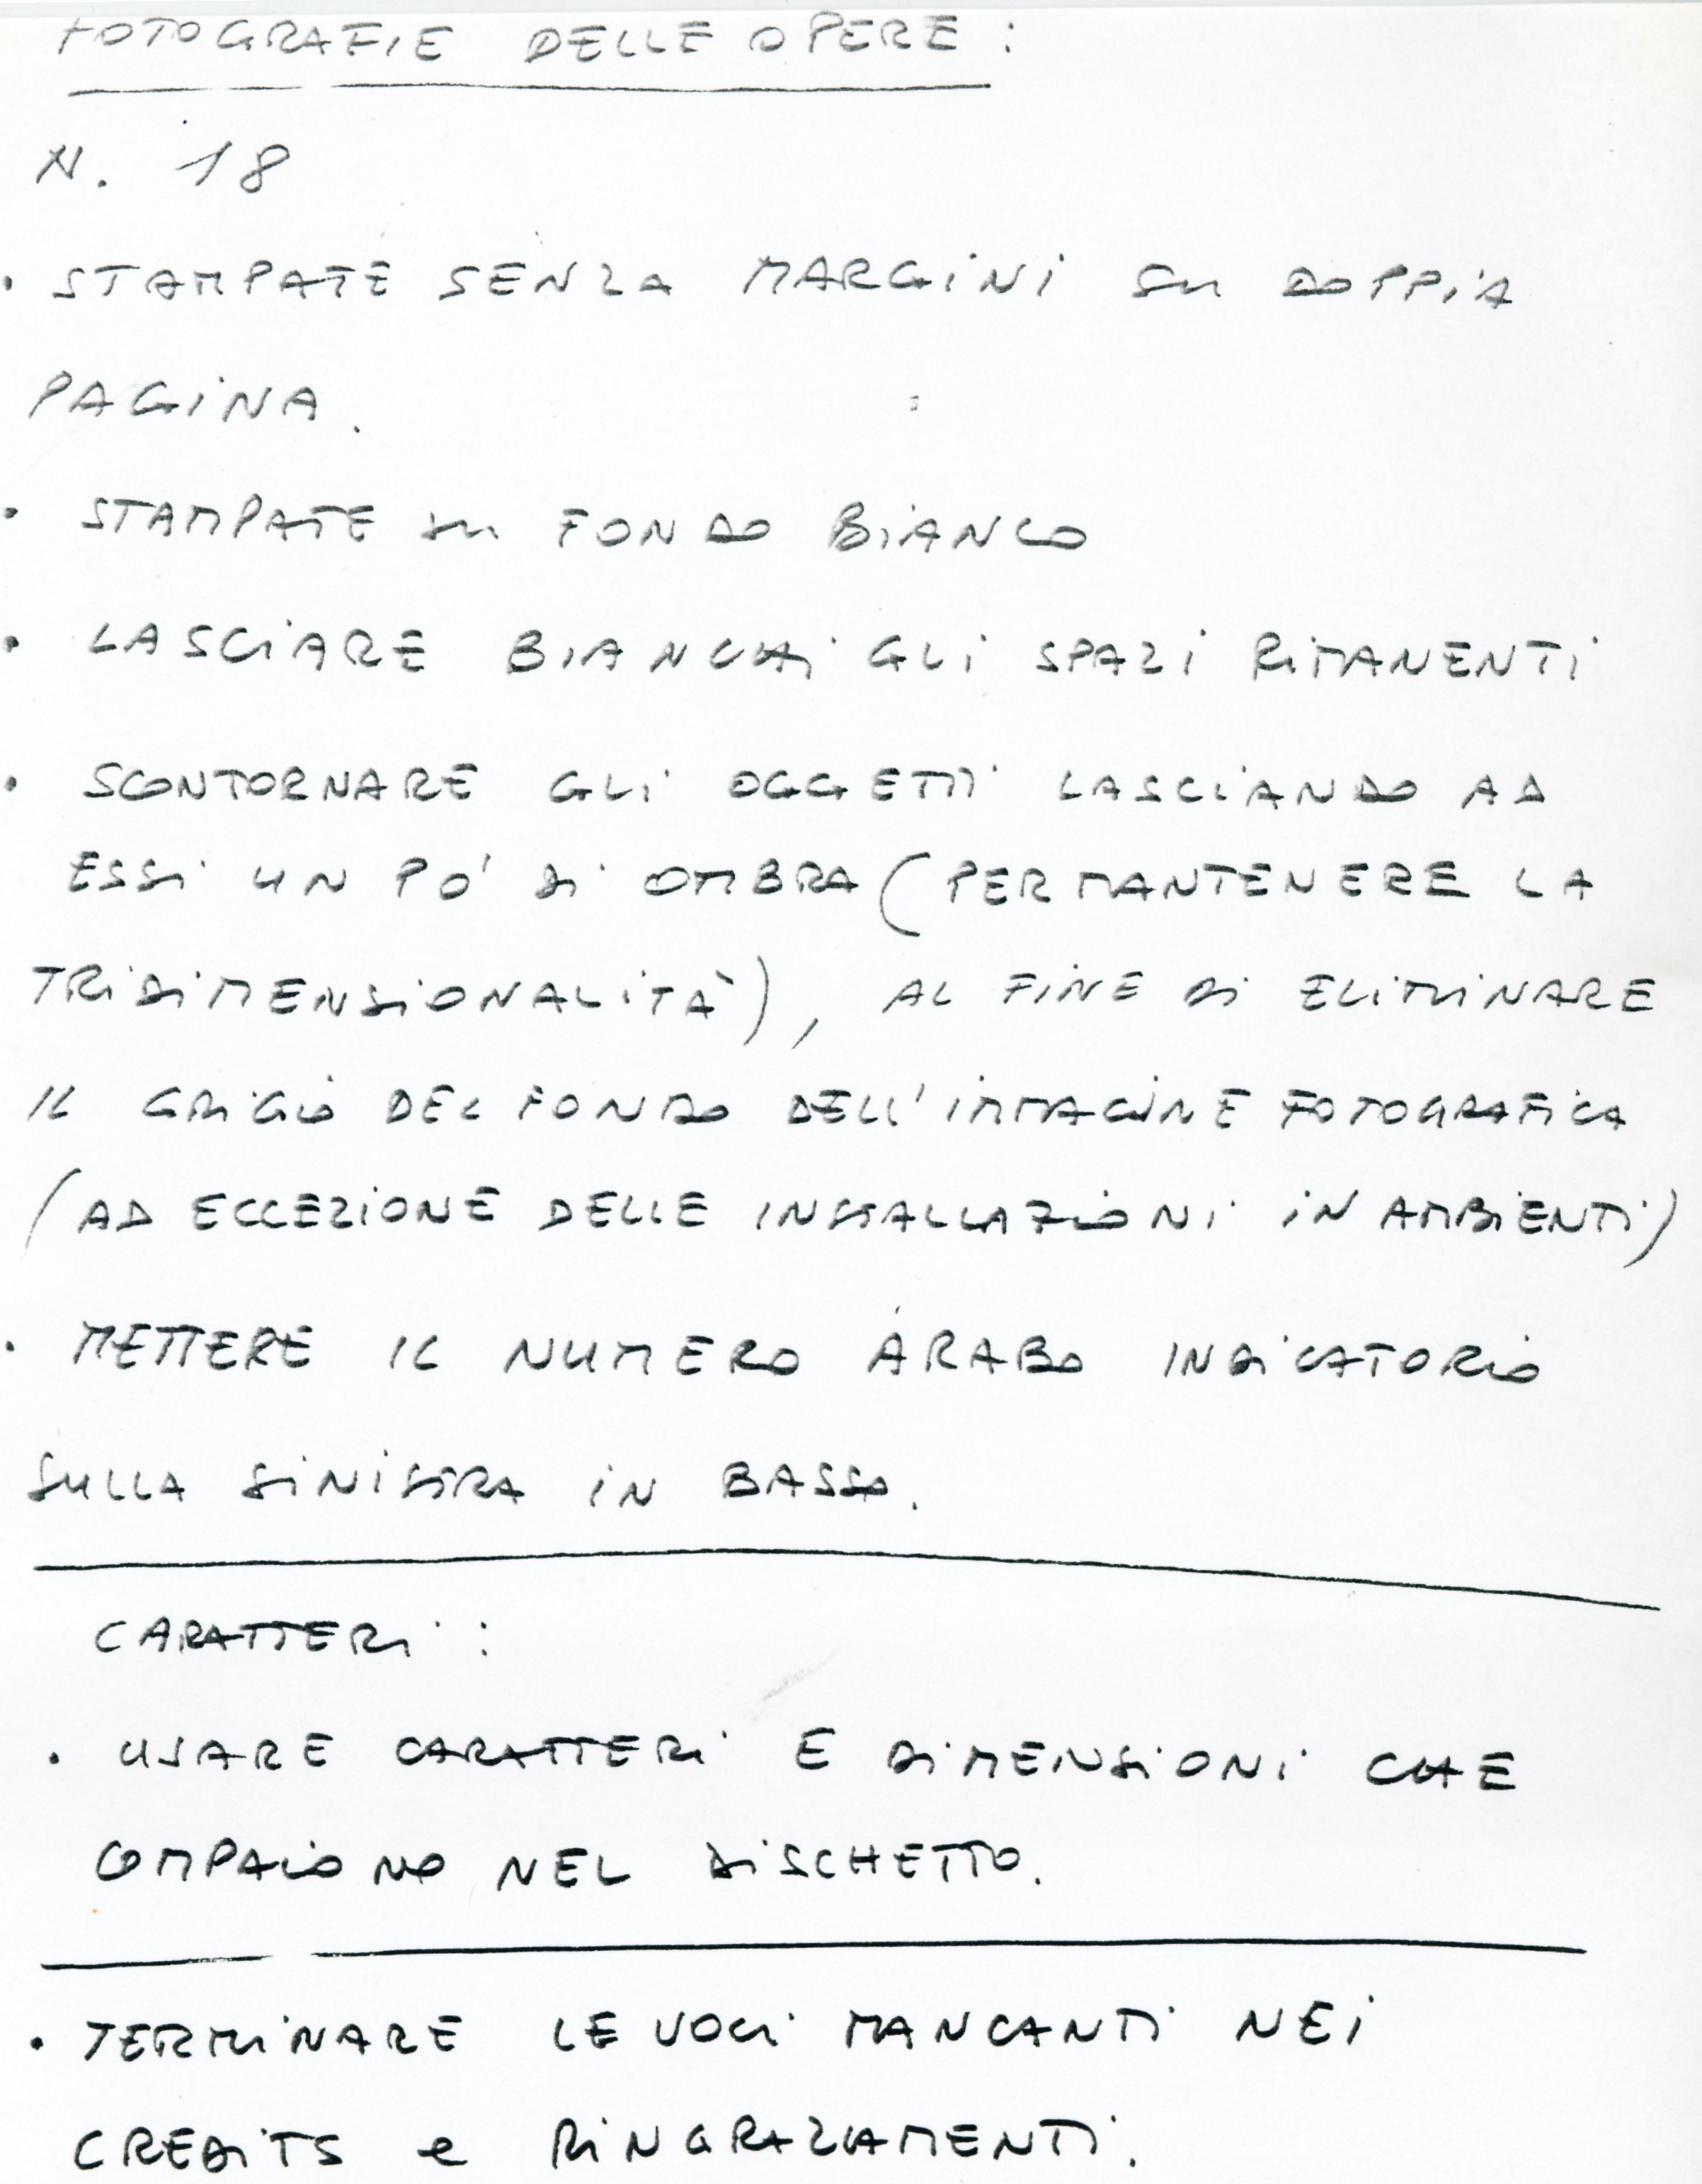 FOTOGRAFIE DELLE OPERE :
N. 18
• STAMPATE SENZA MARGINI SU DOPPIA
PAGINA.
• STAMPATE SU FONDO BIANCO
• LASCIARE BIANCHI GLI SPAZI RIMANENTI
• SCONTORNARE GLI OGGETTI LASCIANDO AD
ESSI UN PO' DI OMBRA (PER MANTENERE LA
TRIDIMENSIONALITÀ), AL FINE DI ELIMINARE
IL GRIGIO DEL FONDO DELL'IMMAGINE FOTOGRAFICA
(AD ECCEZIONE DELLE INSTALLAZIONI IN AMBIENTI)
• METTERE IL NUMERO ARABO INDICATORIO
SULLA SINISTRA IN BASSO.
CARATTERI :
• USARE CARATTERI E DIMENSIONI CHE
COMPAIONO NEL DISCHETTO.
• TERMINARE LE VOCI MANCANTI NEI
CREDITS e RINGRAZIAMENTI.